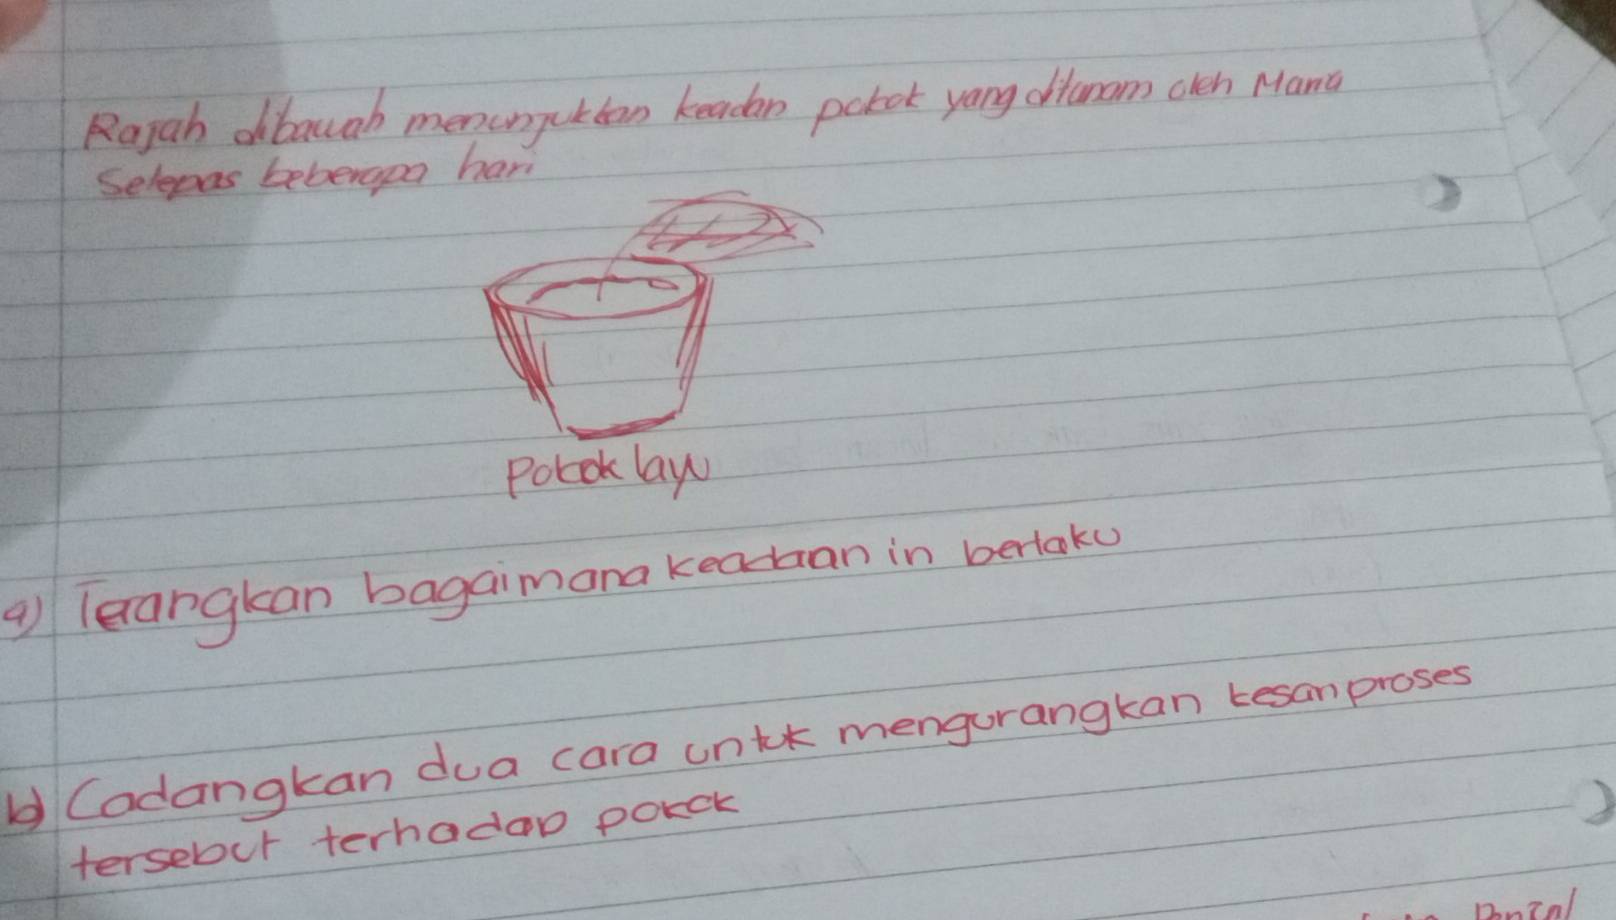 Rajah dibawah menunjukkan keadan pokok yang ditanam oleh Mana
Selepas beberapa hari
Pokok layu
a) Terangkan bagaimana keadaan in berlaku
b) Cadangkan dua cara untuk mengurangkan kesan proses
tersebut terhadap pokok